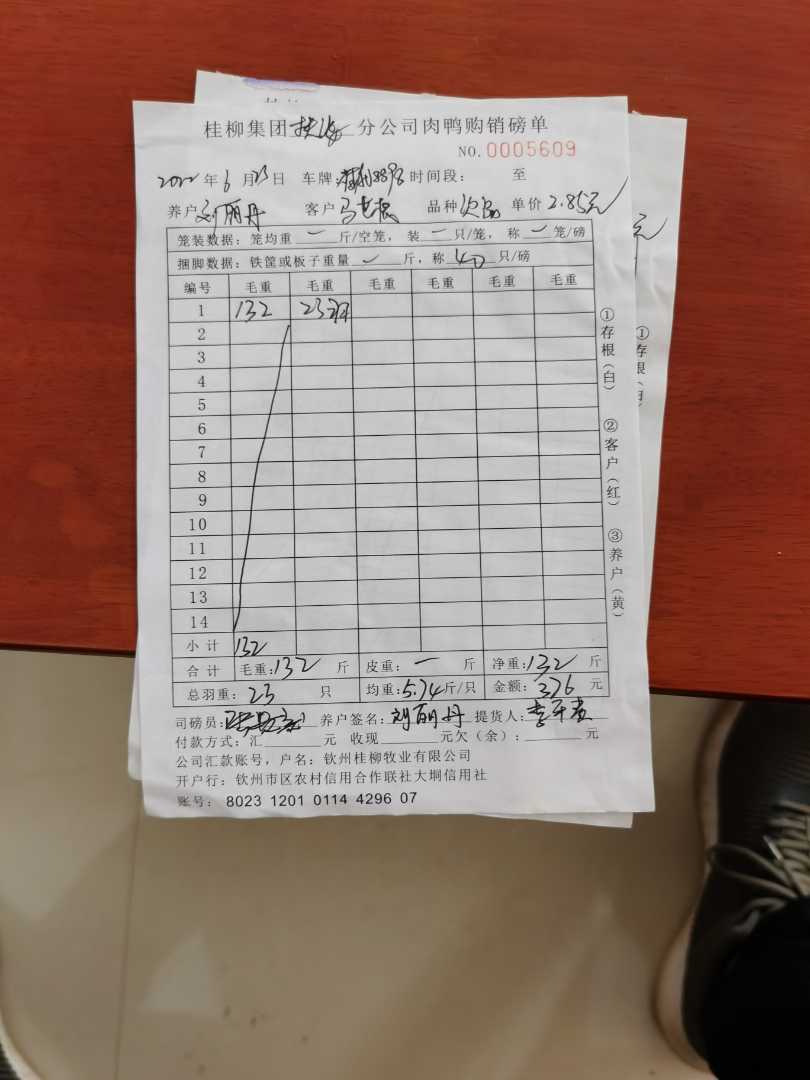 桂柳集团 分公司肉鸭购销磅单
NO.0005609
2022年6月23日 车牌: 时间段: 至
养户刘丽丹 客户 品种次品 单价2.85元
笼装数据:笼均重 — 斤/空笼,装 — 只/笼,称 — 笼/磅
捆脚数据:铁筐或板子重量 — 斤,称 40 只/磅
编号 毛重 毛重 毛重 毛重 毛重 毛重
1 132 23羽
2
3
4
5
6
7
8
9
10
11
12
13
14
小计 132
合计 毛重:132 斤 皮重: — 斤 净重:132 斤
总羽重:23 只 均重:5.74斤/只 金额:376 元
司磅员: 养户签名:刘丽丹 提货人:
付款方式:汇 元 收现 元欠(余): 元
公司汇款账号,户名:钦州桂柳牧业有限公司
开户行:钦州市区农村信用合作联社大垌信用社
账号: 8023 1201 0114 4296 07
①存根(白) ②客户(红) ③养户(黄)
元
①存根(白)